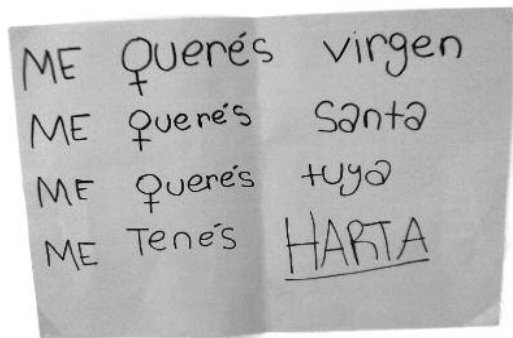 ME Querés virgen
ME Querés Santa
ME Querés tuya
ME Tenés HARTA